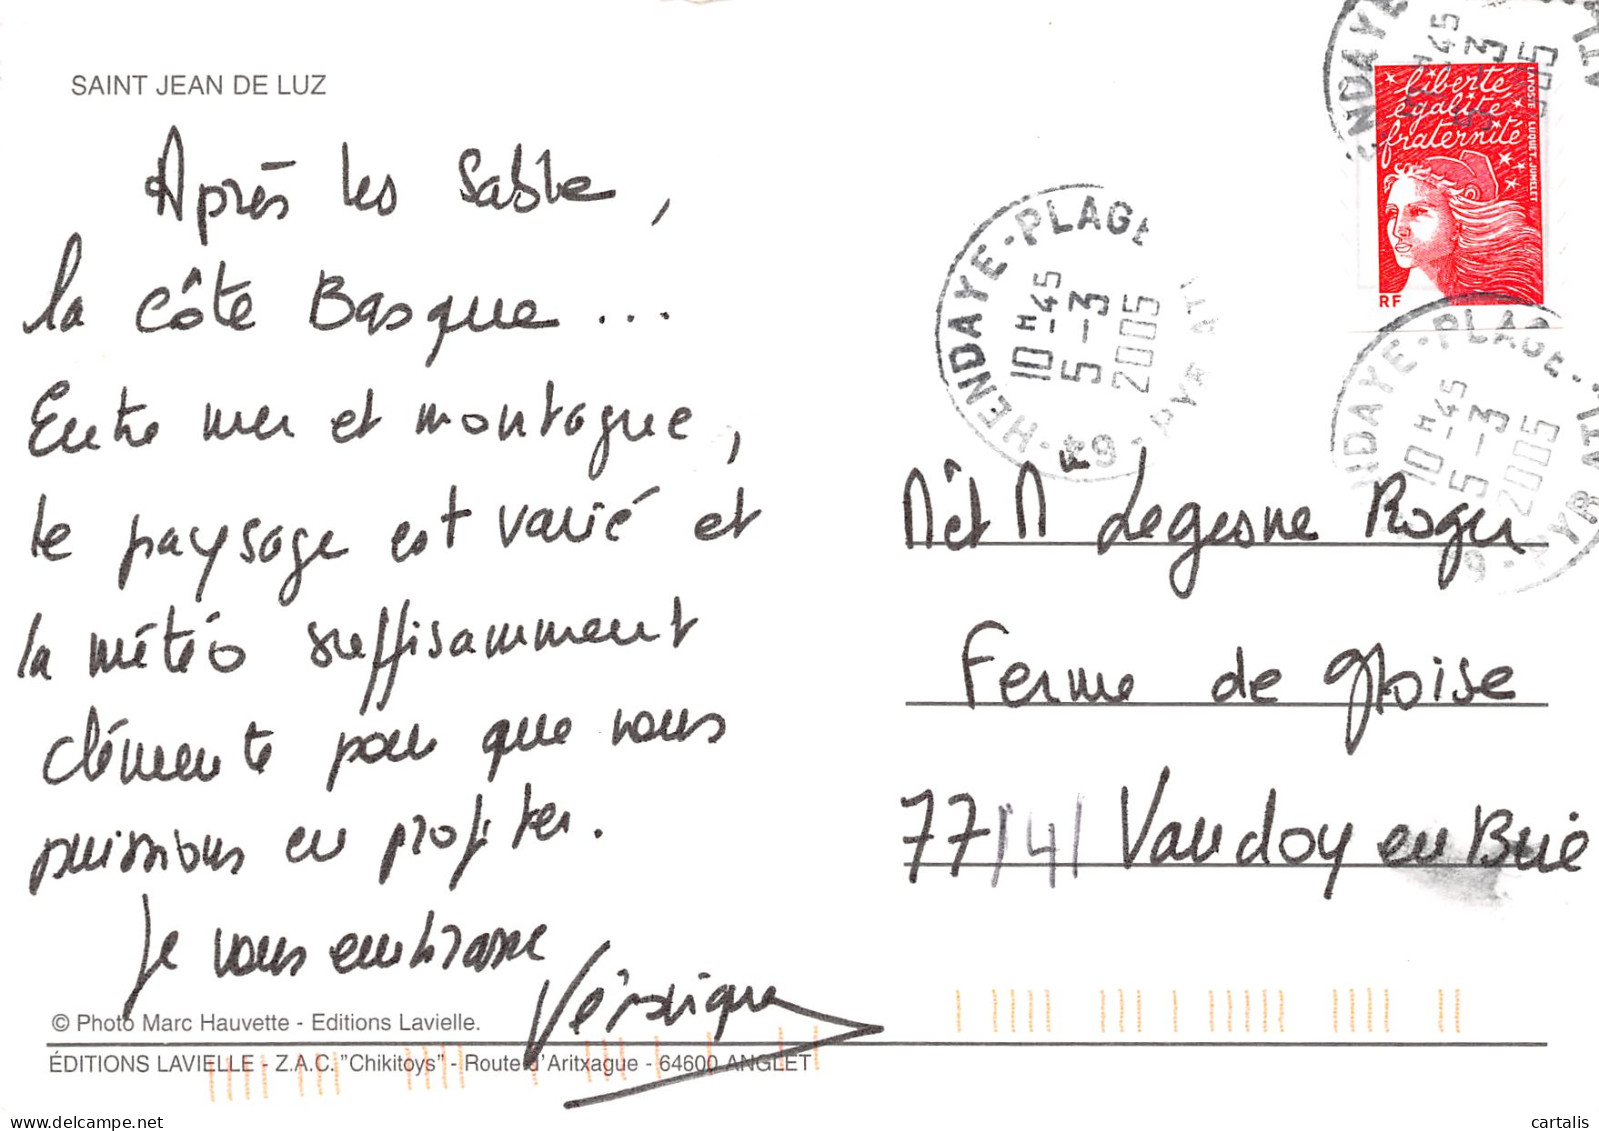 SAINT JEAN DE LUZ
Après les Sable,
la côte Basque...
Entre mer et montagne,
le paysage est varié et
la météo suffisamment
clémente pour que nous
puissions en profiter.
Je vous embrasse
Véronique
© Photo Marc Hauvette - Editions Lavielle.
ÉDITIONS LAVIELLE - Z.A.C. "Chikitoys" - Route d'Aritxague - 64600 ANGLET
liberté
égalité
fraternité
LA POSTE LUQUET-JUMELET
RF
HENDAYE-PLAGE
10H45
5-3
2005
64-PYR ATL
NDAYE
H45
5-3
2005
NDAYE-PLAGE
10H45
5-3
2005
PYR ATL
M et M Legesne Roger
Ferme de
77141 Vaudoy en Brie
cartalis